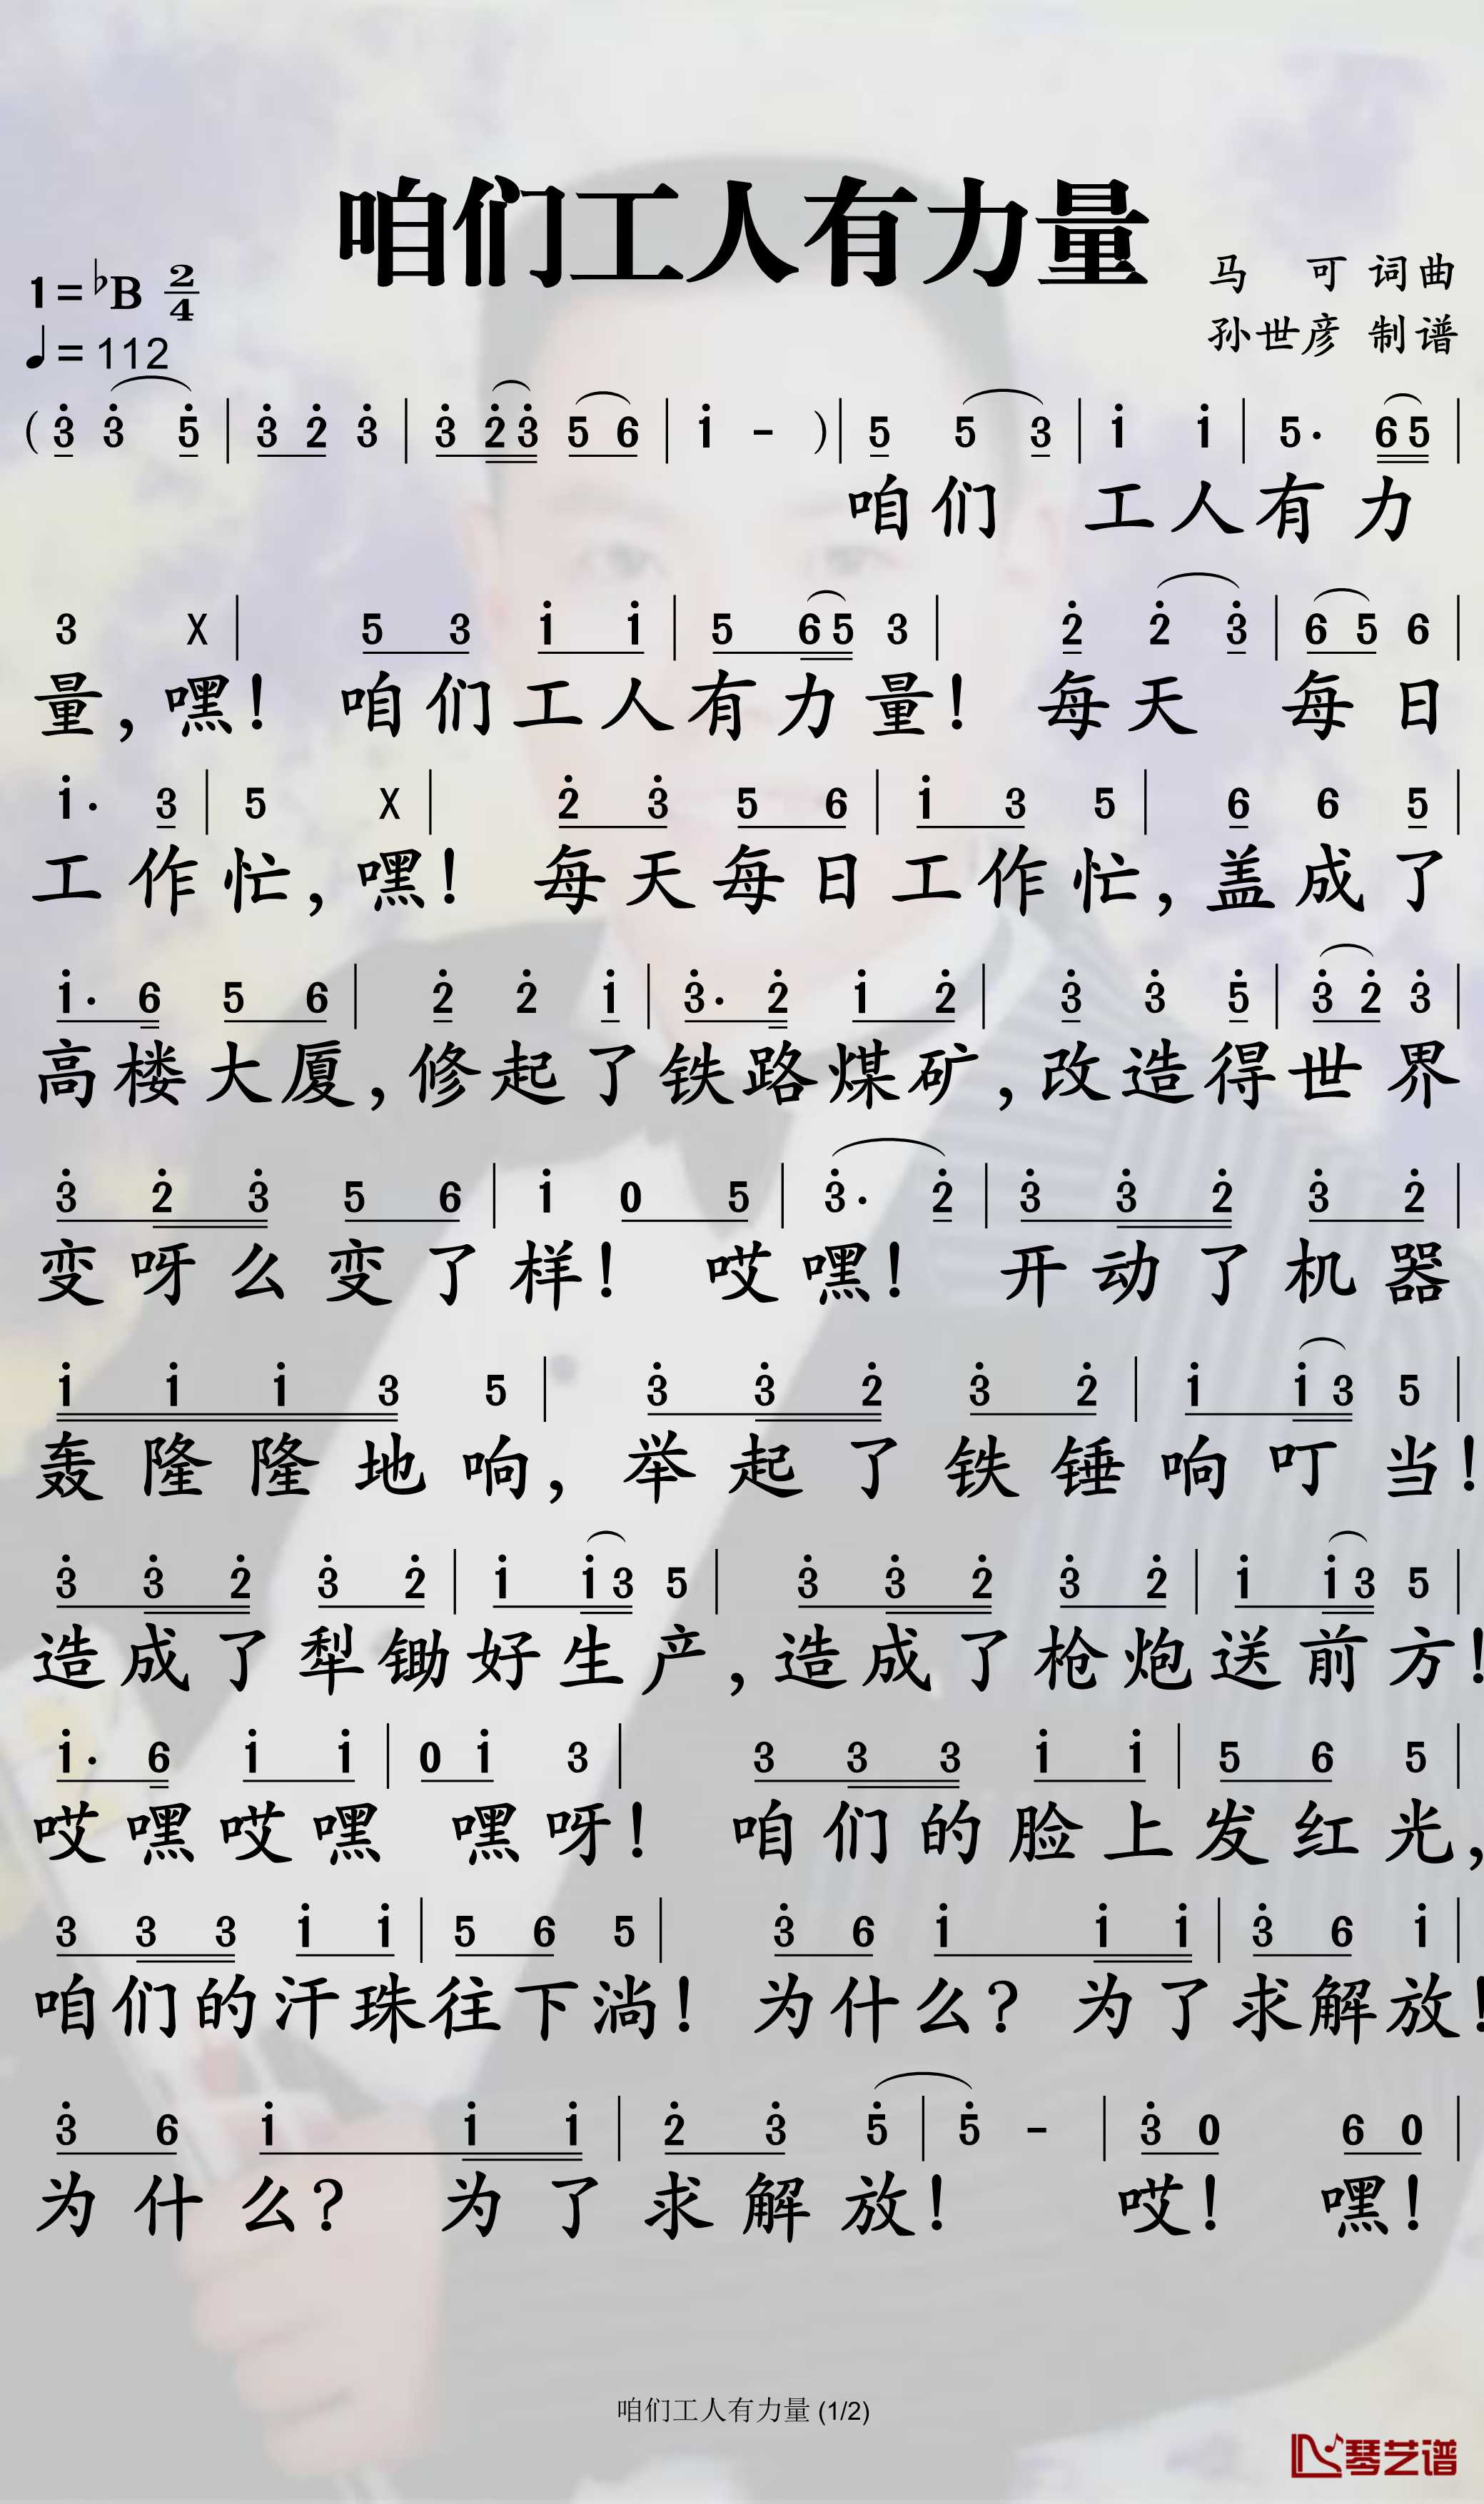 咱们工人有力量
1=♭B 2/4
马 可 词曲
♩=112
孙世彦 制谱
( 3̇ 3̇ 5̇ | 3̇ 2̇ 3̇ | 3̇ 2̇ 3̇ 5 6 | 1̇ - ) | 5 5 3 | 1̇ 1̇ | 5· 6 5 |
咱们 工人有力
3 X | 5 3 1̇ 1̇ | 5 6 5 3 | 2̇ 2̇ 3̇ | 6 5 6 |
量,嘿! 咱们工人有力量! 每天 每日
1̇· 3 | 5 X | 2̇ 3̇ 5 6 | 1̇ 3 5 | 6 6 5 |
工作忙,嘿! 每天每日工作忙,盖成了
1̇· 6 5 6 | 2̇ 2̇ 1̇ | 3̇· 2̇ 1̇ 2̇ | 3̇ 3̇ 5̇ | 3̇ 2̇ 3̇ |
高楼大厦,修起了铁路煤矿,改造得世界
3̇ 2̇ 3̇ 5 6 | 1̇ 0 5 | 3̇· 2̇ | 3̇ 3̇ 2̇ 3̇ 2̇ |
变呀么变了样! 哎嘿! 开动了机器
1̇ 1̇ 1̇ 3 5 | 3̇ 3̇ 2̇ 3̇ 2̇ | 1̇ 1̇ 3 5 |
轰隆隆地响,举起了铁锤响叮当!
3̇ 3̇ 2̇ 3̇ 2̇ | 1̇ 1̇ 3 5 | 3̇ 3̇ 2̇ 3̇ 2̇ | 1̇ 1̇ 3 5 |
造成了犁锄好生产,造成了枪炮送前方!
1̇· 6 1̇ 1̇ | 0 1̇ 3 | 3 3 3 1̇ 1̇ | 5 6 5 |
哎嘿哎嘿 嘿呀! 咱们的脸上发红光,
3 3 3 1̇ 1̇ | 5 6 5 | 3̇ 6 1̇ 1̇ 1̇ | 3̇ 6 1̇ |
咱们的汗珠往下淌! 为什么? 为了求解放!
3̇ 6 1̇ 1̇ 1̇ | 2̇ 3̇ 5̇ | 5̇ - | 3̇ 0 6 0 |
为什么? 为了求解放! 哎! 嘿!
咱们工人有力量 (1/2)
琴艺谱